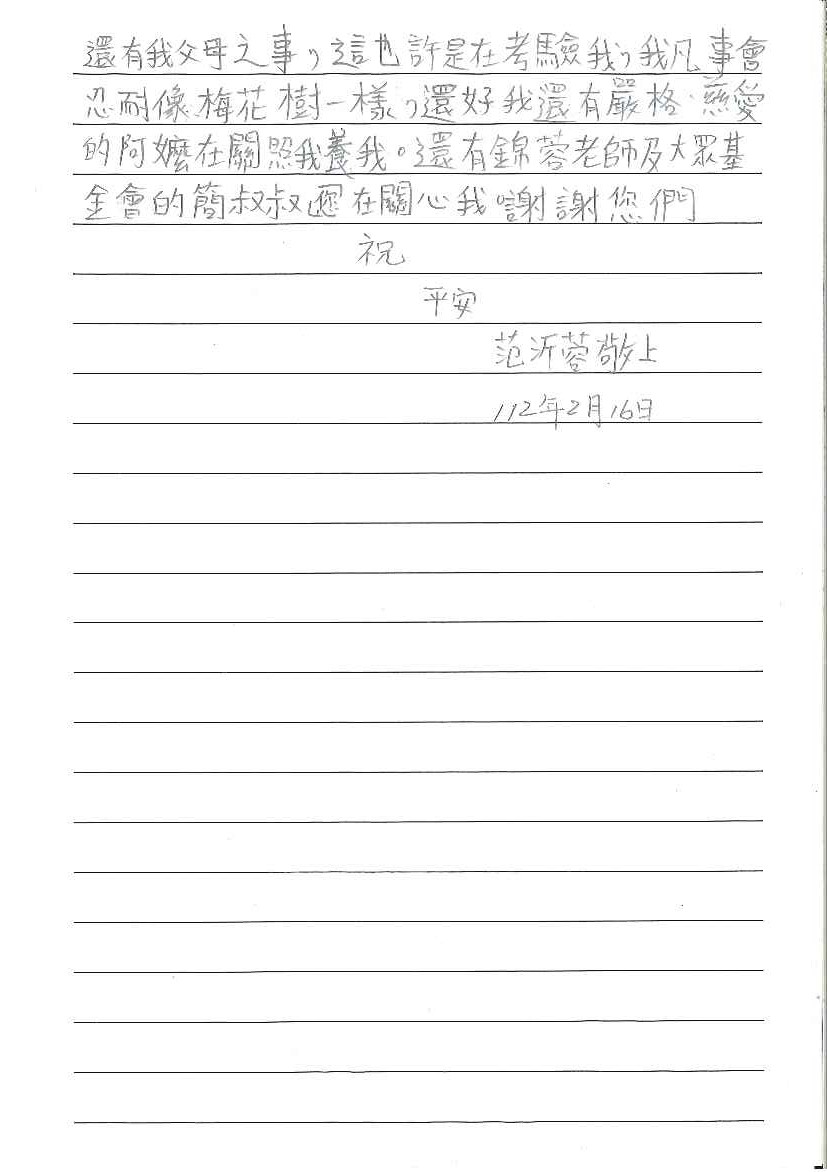 還有我父母之事，這也許是在考驗我，我凡事會
忍耐像梅花樹一樣，還好我還有嚴格、慈愛
的阿嬤在關照我養我。還有錦蓉老師及大眾基
金會的簡叔叔在關心我謝謝您們
祝
平安
范沂蓉敬上
112年2月16日